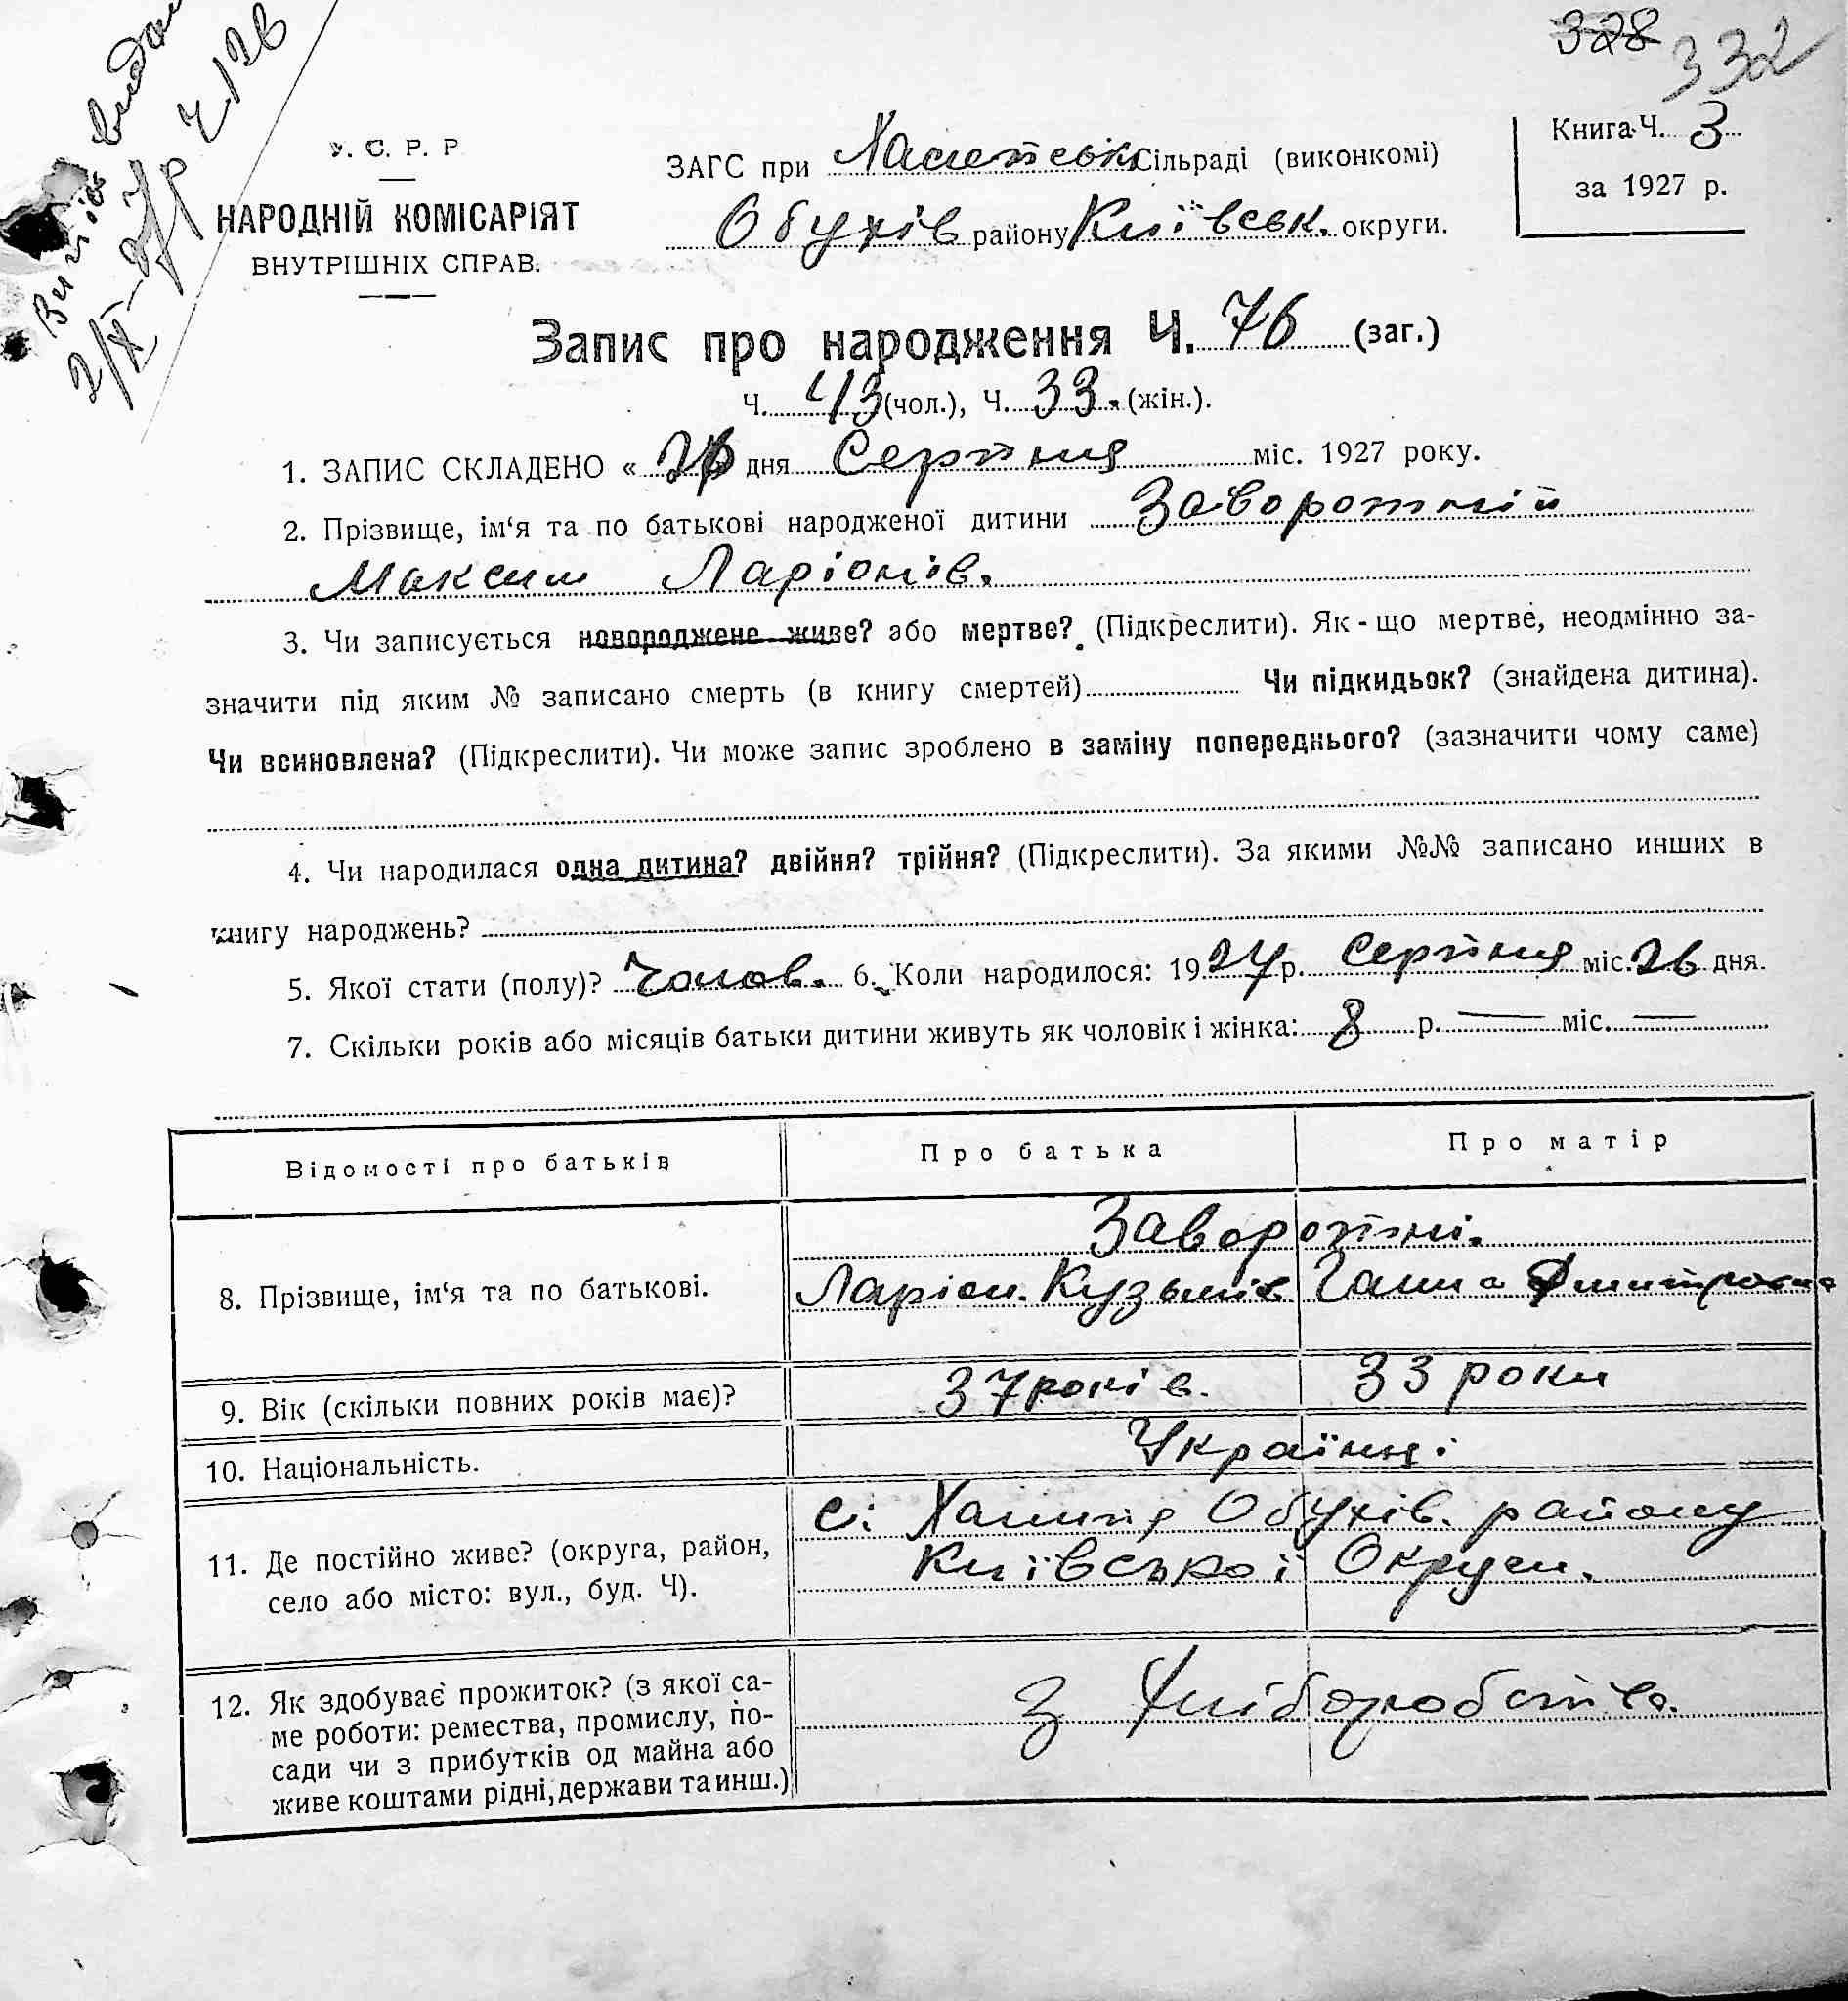 328 332
Витяг видан
2/XI-27р Ч/26
У. С. Р. Р
НАРОДНІЙ КОМІСАРІЯТ
ВНУТРІШНІХ СПРАВ.
ЗАГС при сільраді (виконкомі)
Обухів району Київськ. округи.
Книга Ч. 3
за 1927 р.
Запис про народження Ч. 76 (заг.)
Ч. 43 (чол.), Ч. 33. (жін.).
1. ЗАПИС СКЛАДЕНО « дня Серпня міс. 1927 року.
2. Прізвище, ім‘я та по батькові народженої дитини Заворотній
Максим Ларіонів.
3. Чи записується новороджене живе? або мертве? (Підкреслити). Як - що мертве, неодмінно за-
значити під яким № записано смерть (в книгу смертей) Чи підкидьок? (знайдена дитина).
Чи всиновлена? (Підкреслити). Чи може запис зроблено в заміну попереднього? (зазначити чому саме)
4. Чи народилася одна дитина? двійня? трійня? (Підкреслити). За якими №№ записано инших в
книгу народжень?
5. Якої стати (полу)? Чолов. 6. Коли народилося: 1927 р. Серпня міс. 26 дня.
7. Скільки років або місяців батьки дитини живуть як чоловік і жінка: 8 р. — міс. —
Відомості про батьків Про батька Про матір
8. Прізвище, ім‘я та по батькові. Заворотні.
Ларіон Кузьмів Ганна Дмитровна
9. Вік (скільки повних років має)? 37 років. 33 роки
10. Національність. Українці
11. Де постійно живе? (округа, район,
село або місто: вул., буд. Ч).
с. Обухів. району
Київської Округи.
12. Як здобуває прожиток? (з якої са-
ме роботи: ремества, промислу, по-
сади чи з прибутків од майна або
живе коштами рідні, держави та инш.)
з Хліборобства.